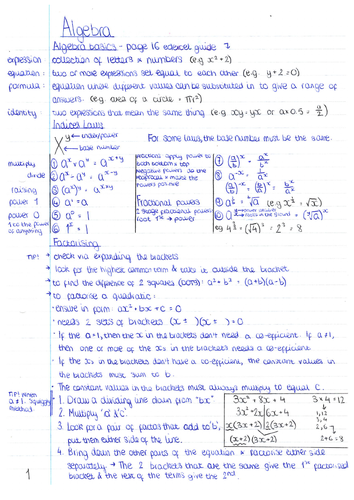 Algebra
Algebra basics - page 16 edexcel guide
expression collection of letters & numbers (e.g. x²+2)
equation: two or more expressions set equal to each other (e.g. y+2=0)
formula: equation where different values can be substituted in to give a range of
answers. (e.g. area of a circle = πr²)
identity two expressions that mean the same thing (e.g. xy=yx or a×0.5 = a/2)
Indices Laws
x y ← index/power
← base number
For some laws, the base number must be the same.
multiply ① aˣ × aʸ = aˣ⁺ʸ
divide ② aˣ ÷ aʸ = aˣ⁻ʸ
raising ③ (aˣ)ʸ = aˣ*ʸ
power 1 ④ a¹ = a
power 0 ⑤ a⁰ = 1
1 to the power of anything ⑥ 1ˣ = 1
fractions: apply power to both bottom & top
Negative powers: do the reciprocal & make the powers positive
Fractional powers
2 stage fractional power:
root 1st → power
⑦ (a/b)ˣ = aˣ/bˣ
⑧ a⁻ˣ = 1/aˣ
(a/b)⁻ˣ = (b/a)ˣ = bˣ/aˣ
Factorising
TIP! → check via expanding the brackets
→ look for the highest common term & take it outside the bracket
→ to find the difference of 2 squares (DOTS): a² + b² = (a+b)(a-b)
→ to factorise a quadratic:
· ensure in form: ax² + bx + c = 0
· needs 2 sets of brackets (x ± )(x ± ) = 0
· If the a=1, then the x in the brackets don't need a co-efficient. If a≠1,
then one or more of the xs in the brackets needs a co-efficient
· If the xs in the brackets don't have a co-efficient, the constant values in
the brackets must sum to b.
· The constant values in the brackets must always multiply to equal c.
TIP! When a≠1: method
1. Draw a dividing line down from "bx"
2. Multiply 'a' & 'c'.
3. Look for a pair of factors that add to 'b',
put them either side of the line.
4. Bring down the other parts of the equation & factorise either side
separately → The 2 brackets that are the same give the 1st factorised
bracket & the rest of the terms give the 2nd.
3x² + 8x + 4
3x² + 2x | 6x + 4
x(3x+2) | 2(3x+2)
(x+2)(3x+2)
3×4=12
1,12
3,4
2,6
2+6=8
1